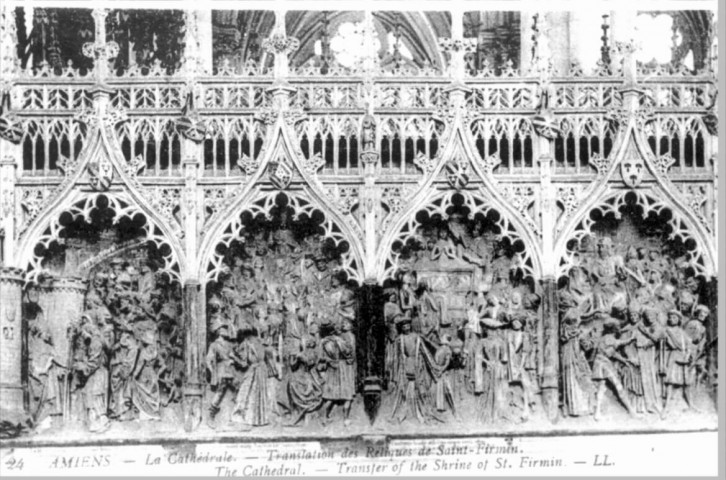 24 AMIENS — La Cathédrale. — Translation des Reliques de Saint-Firmin.
The Cathedral. — Transfer of the Shrine of St. Firmin. — LL.